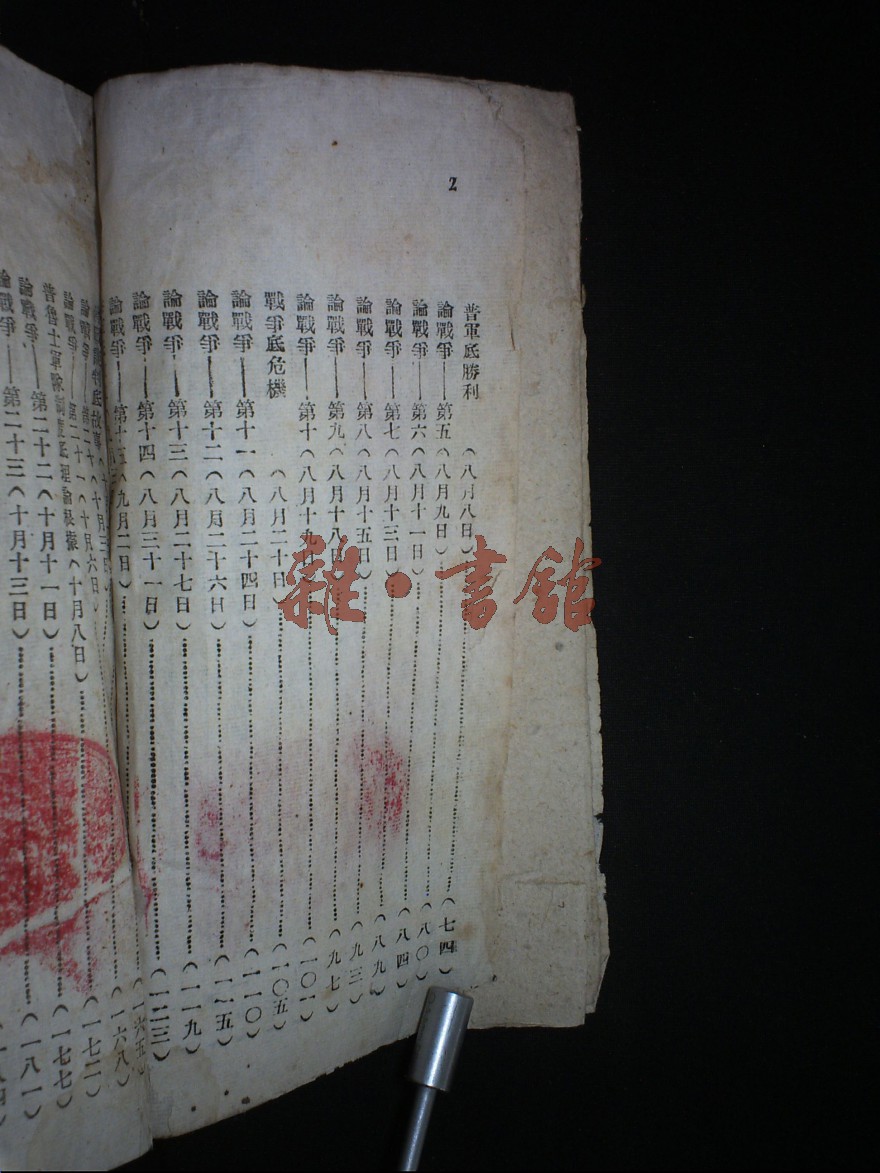 2
普軍底勝利 (八月八日)……(七四)
論戰爭——第五(八月九日)……(八〇)
論戰爭——第六(八月十一日)……(八四)
論戰爭——第七(八月十三日)……(八九)
論戰爭——第八(八月十五日)……(九三)
論戰爭——第九(八月十八日)……(九七)
論戰爭——第十(八月十九日)……(一〇一)
戰爭底危機 (八月二十日)……(一〇五)
論戰爭——第十一(八月二十四日)……(一一〇)
論戰爭——第十二(八月二十六日)……(一一五)
論戰爭——第十三(八月二十七日)……(一一九)
論戰爭——第十四(八月三十一日)……(一二三)
論戰爭——第十五(九月二日)……
底故事(十月三日)……(一六五)
論戰爭——第二十(十月六日)……(一六八)
論戰爭——第二十一(十月八日)……(一七二)
普魯士軍隊制度底理論根據(十月八日)……(一七二)
論戰爭——第二十二(十月十一日)……(一七七)
論戰爭——第二十三(十月十三日)……(一八一)
雜·書館